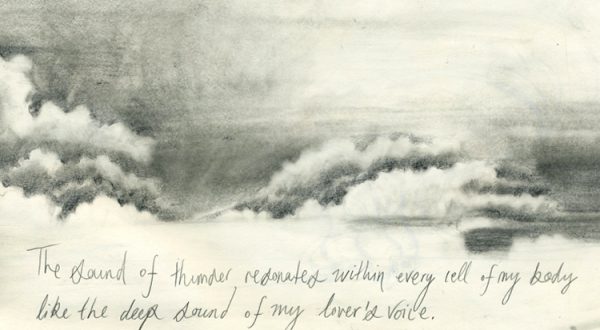 The sound of thunder, resonates within every cell of my body
like the deep sound of my lover's voice.